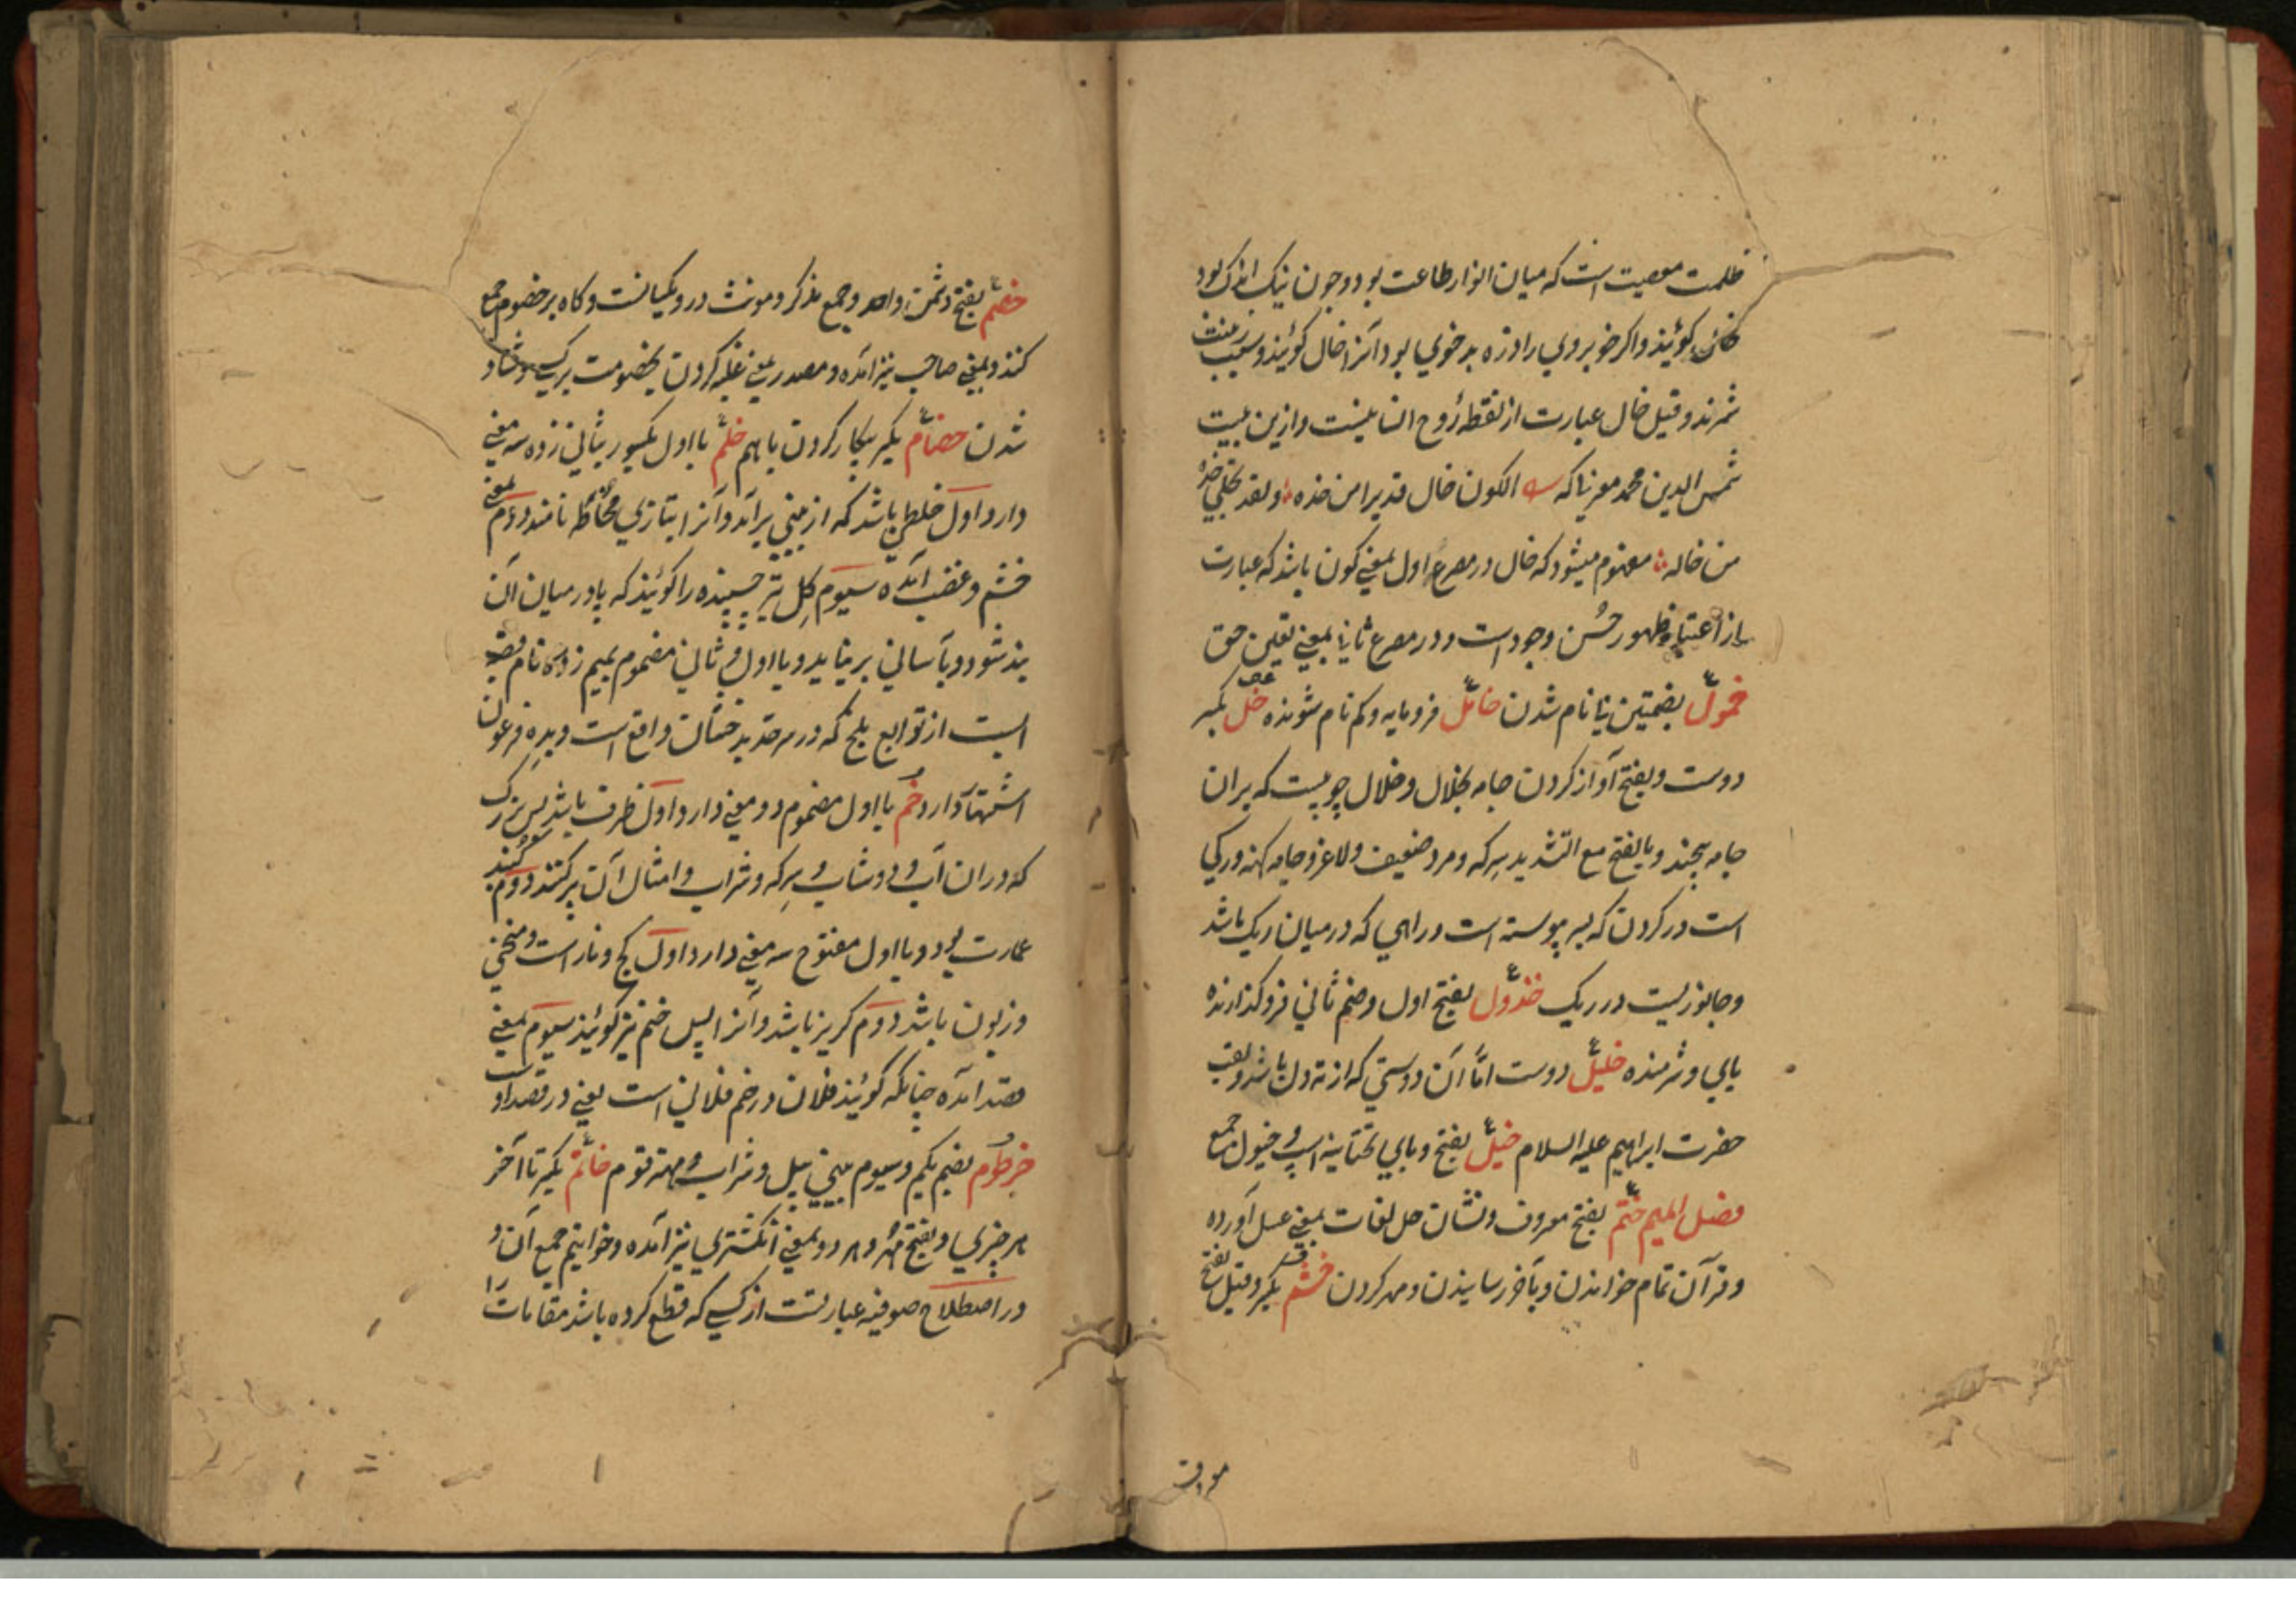 ظلمت معصیت است که میان انوار طاعت بود و چون نیک اندک بود
خال گویند و اگر خوبروی را اندک بدخوی بود آنرا خال گویند و سبب زینت
شمرند و قیل خال عبارت از نقطه روح انسانیست و ازین بیت
شمس الدین محمد مغربی که الکون خال قدیرا من خده و لقد تجلی خده
من خاله مفهوم میشود که خال در مصرع اول بمعنی کون باشد که عبارت
از اعتبار ظهور حُسن وجود است و در مصرع ثانی بمعنی تعین حق
خمول بضمتین بی نام شدن خامل فرومایه و کم نام شونده خل بکسر
دوست و بفتح آواز کردن جامه بخلال و خلال چوبیست که بران
جامه پیچند و بالفتح مع التشدید سرکه و مرد ضعیف و لاغر و جامه کهنه و رکی
است در کردن که بسر پیوسته است و راهی که در میان ریک باشد
و جانوریست در ریک خذول بفتح اول و ضم ثانی فروکذارنده
یاری و شرمنده خلیل دوست امّا آن دوستی که از ته دل باشد و لقب
حضرت ابراهیم علیه السلام خیل بفتح و یای تحتانیه اسپ و خیول جمع
فصل المیم ختم بفتح معروف و نشان حل لغات بمعنی عسل آورده
و قرآن تمام خواندن و بآخر رسانیدن و مهر کردن خشم بکسر و قیل بفتح
خصم بفتح دشمن واحد و جمع مذکر و مونث درو یکسانست و کاه بر خصوم جمع
کنند و بمعنی صاحب نیز آمده و مصدر بمعنی غلبه کردن بخصومت بر کسی و شاد
شدن خصام بکسر پیکار کردن باهم خلم با اول مکسور بثانی زده سه معنی
دارد اول خلطی باشد که از بینی برآید و آنرا بتازی مخاط نامند دوم بمعنی
خشم و غضب آمده سیوم کِل تیره چسپنده را کویند که پا در میان آن
بند شود و بآسانی بر نیاید و با اول و ثانی مضموم بمیم زده نام قصبه
ایست از توابع بلخ که در سرحد بدخشان واقع است و بدِه فرعون
اشتهار دارد خُم با اول مضموم دو معنی دارد اول ظرف باشد بس بزرک
که دران آب و دوشاب و سرکه و شراب و امثال آن پر کنند دوم کنبد
عمارت بود و با اول مفتوح سه معنی دارد اول کج و ناراست و منحنی
و زبون باشد دوم کریز باشد و آنرا پس خم نیز کویند سیوم بمعنی
قصد آمده چنانکه کویند فلان در خم فلانی است یعنی در قصد اوست
خرطوم بضم یکم و سیوم بینی پیل و شراب و مهتر قوم خاتم بکسر تا آخر
هر چیزی و بفتح مُهر و هر دو بمعنی انکشتری نیز آمده و خواتیم جمع آن و
در اصطلاح صوفیه عبارتست از کسی که قطع کرده باشد مقامات را